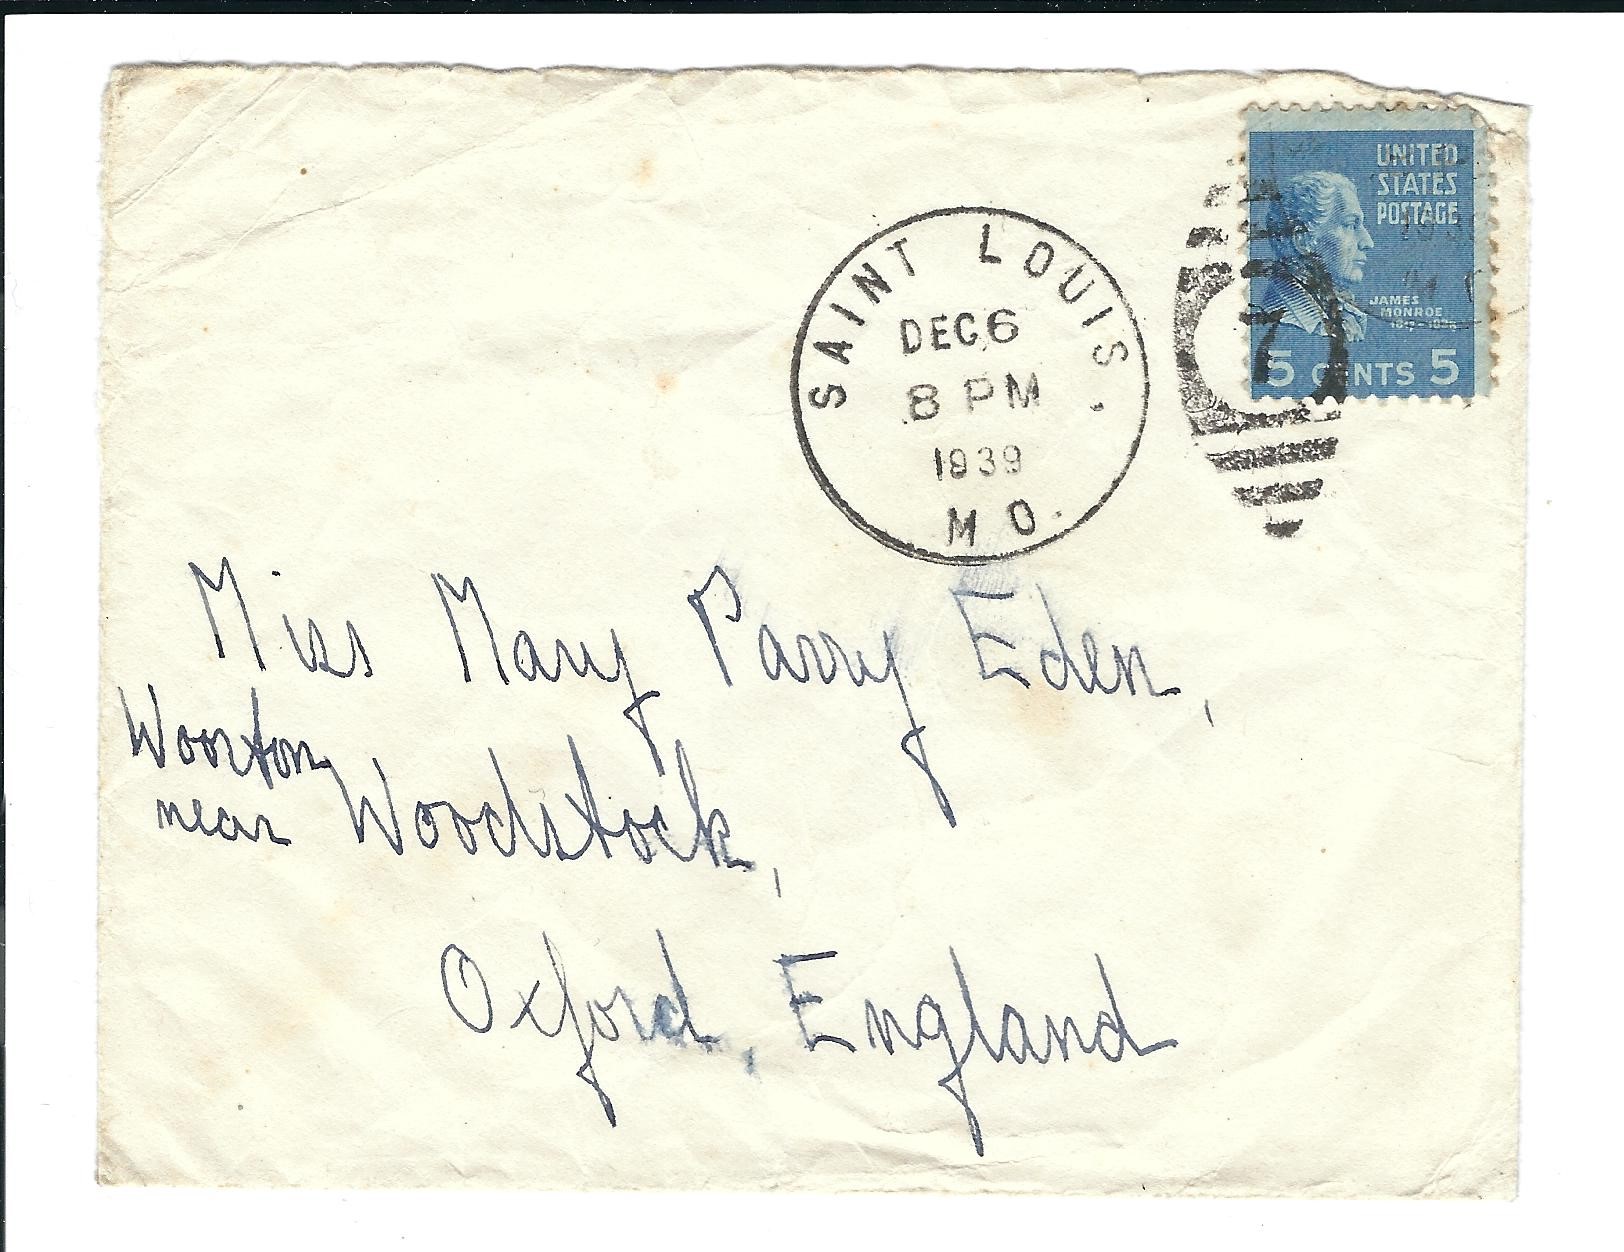 UNITED
STATES
POSTAGE
JAMES
MONROE
5 CENTS 5
7
SAINT LOUIS,
DEC 6
8 PM
1939
MO.
Miss Mary Parry Eden,
Wooton
near Woodstock,
Oxford, England